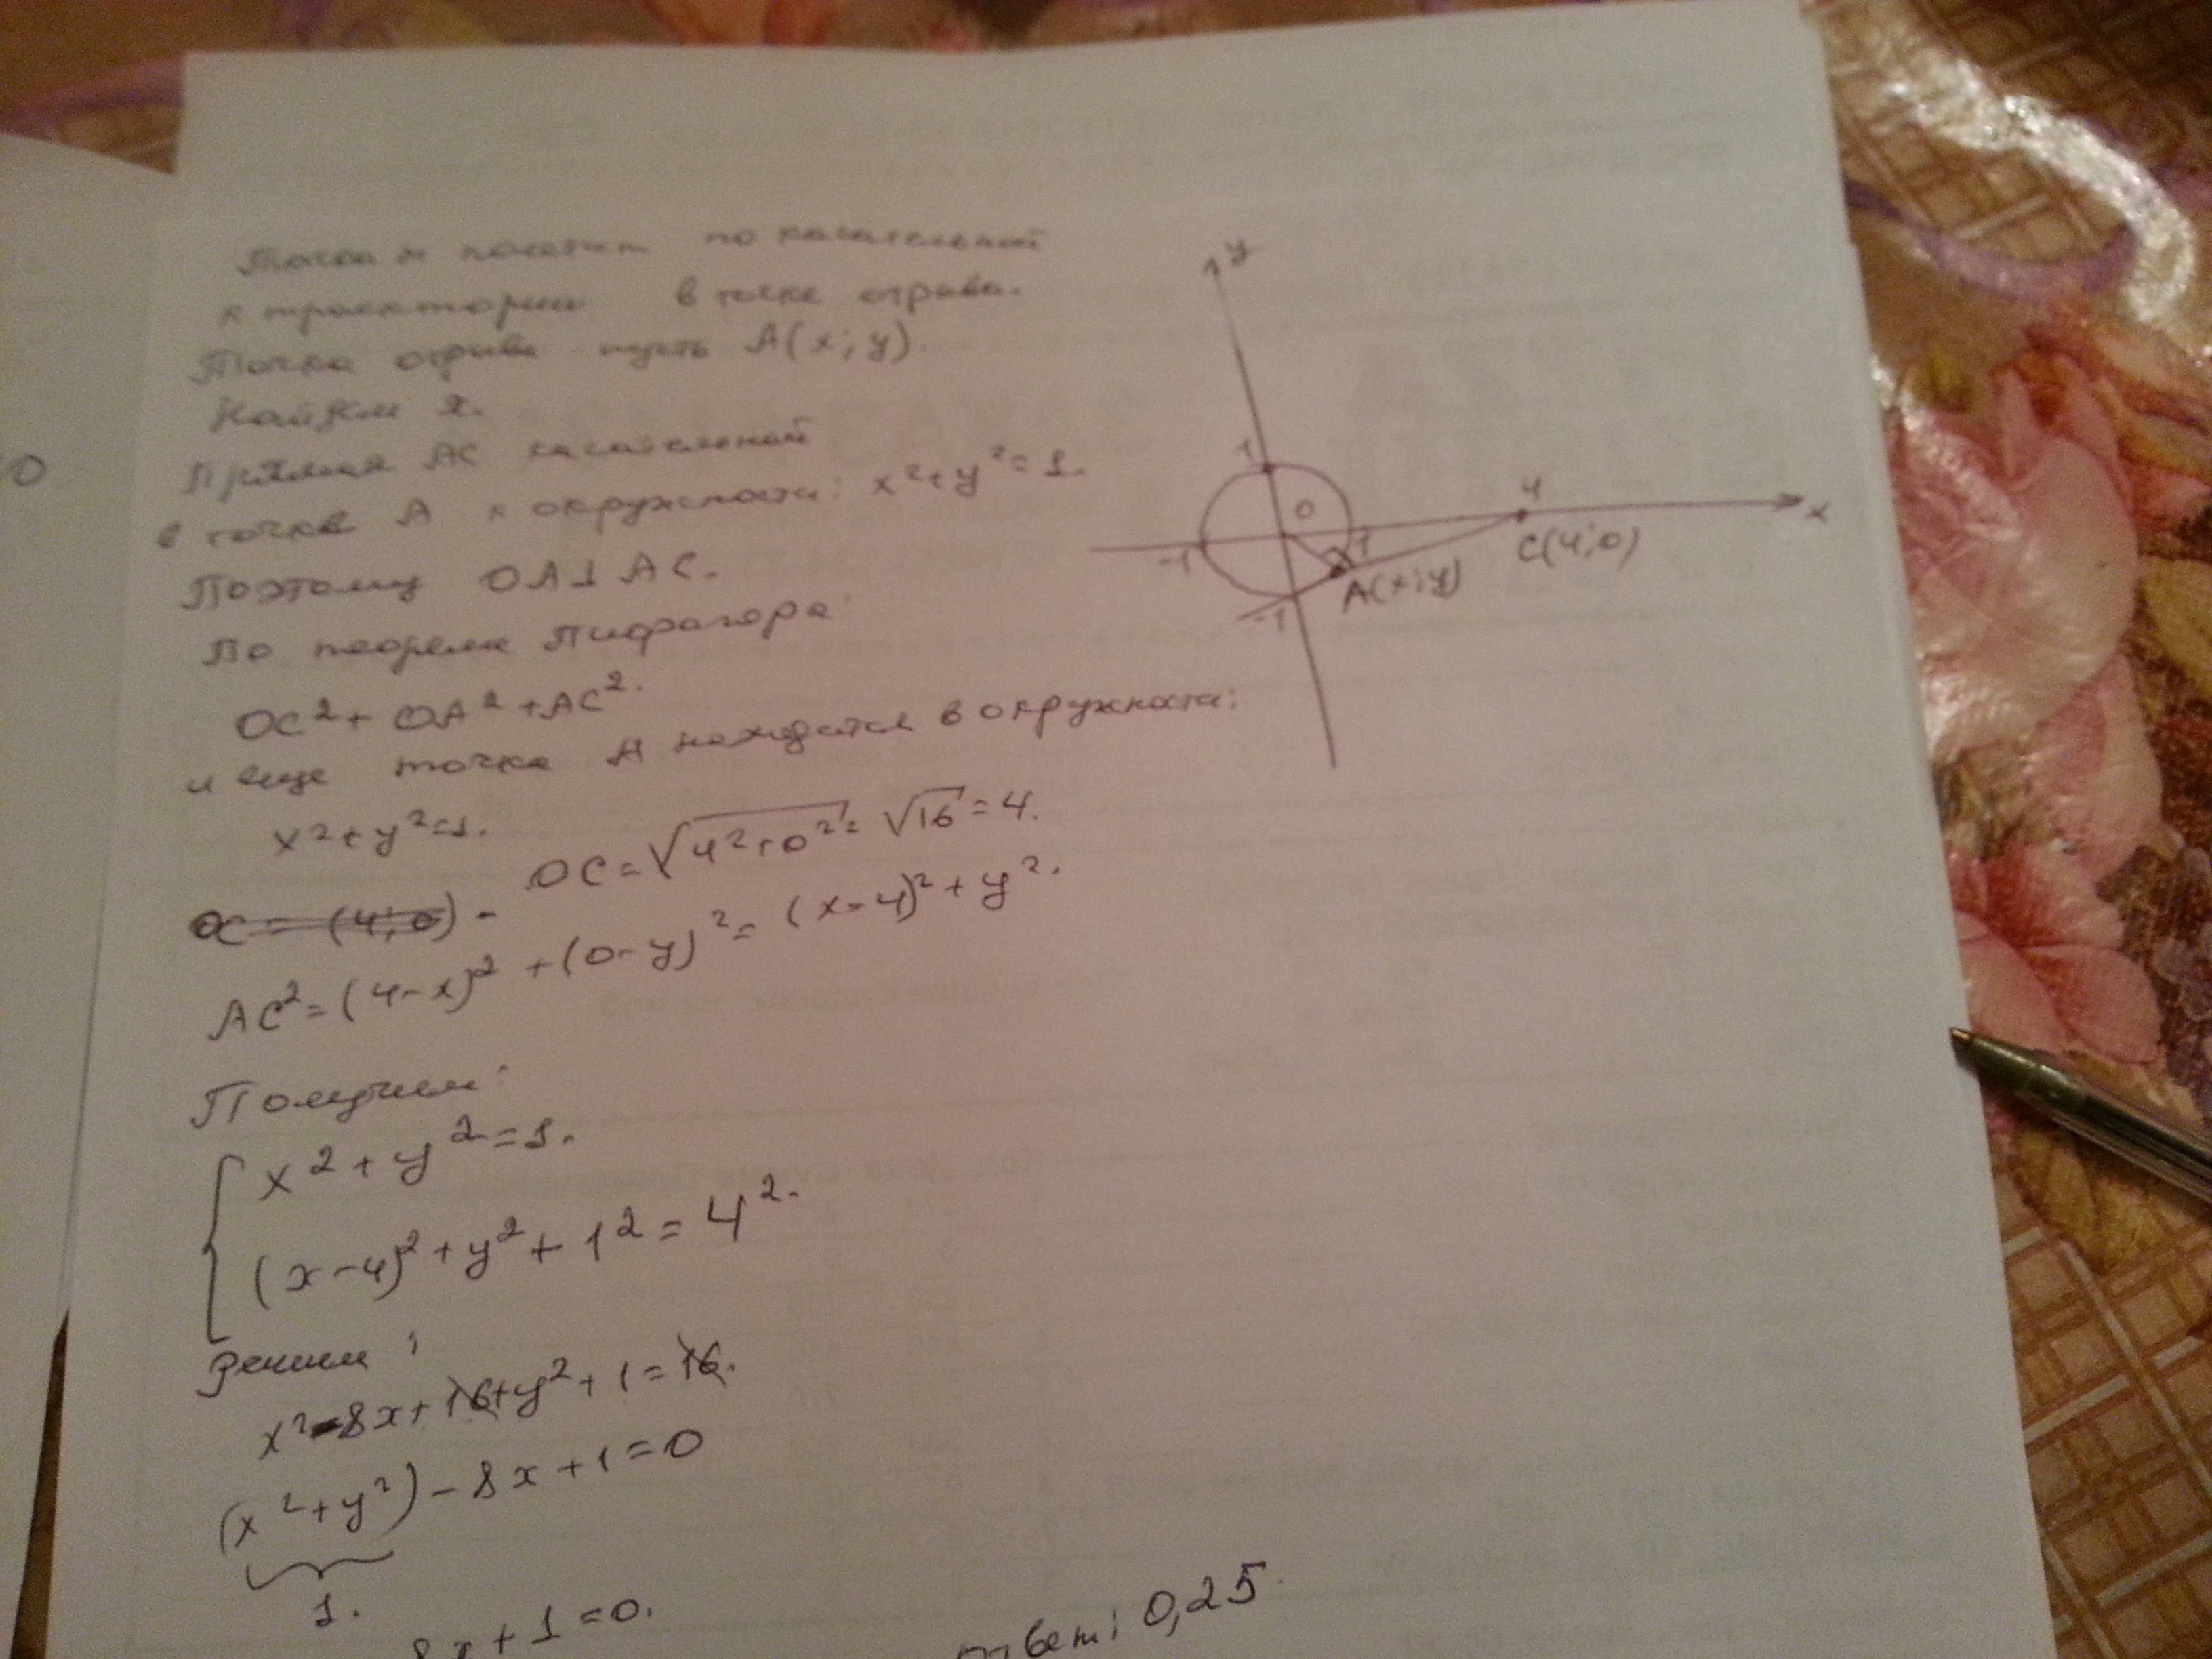 Точка полетит по касательной
к траектории в точке отрыва.
Точка отрыва пусть A(x; y).
Найдем x.
Прямая AC касательной
в точке A к окружности: x²+y²=1.
Поэтому OA⊥AC.
По теореме Пифагора:
OC²+OA²+AC².
и еще точка A находится в окружности:
x²+y²=1.
OC = (4; 0) - OC=√(4²+0²)= √16=4.
AC²=(4-x)²+(0-y)²=(x-4)²+y².
Получим:
x²+y²=1.
(x-4)²+y²+1²=4².
Решим:
x²-8x+16+y²+1=16.
(x²+y²)-8x+1=0
1.
8x+1=0.
Ответ: 0,25.
y
1
0
4
x
-1
1
C(4; 0)
A(x; y)
-1
0